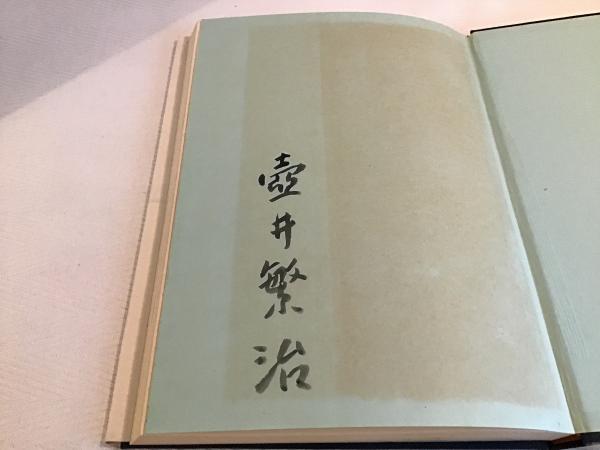 壺井繁治